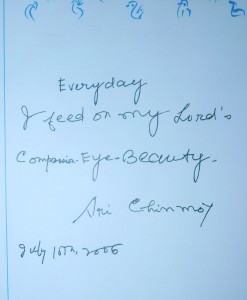 Everyday
I feed on my Lord's
Compassion-Eye-Beauty.
Sri Chinmoy
July 10th, 2006